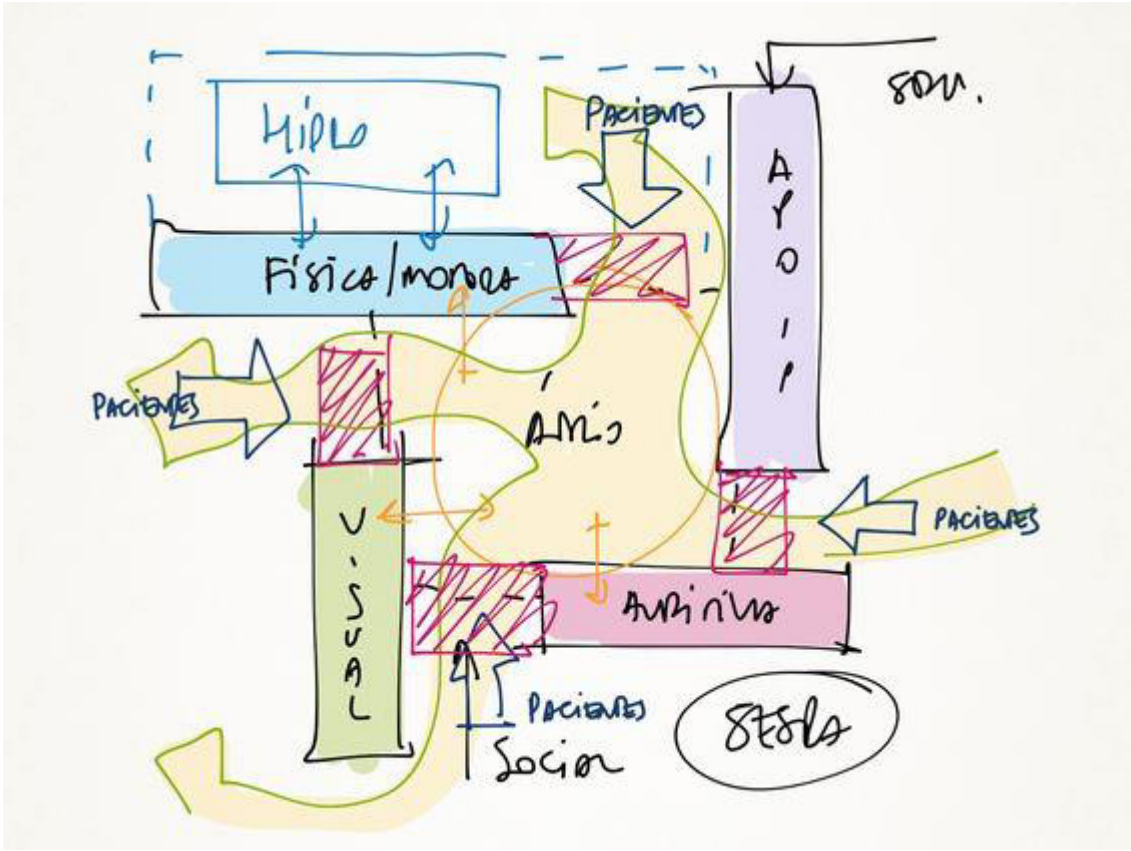 HÍDRO
PACIENTES
SERV.
APOIO
FÍSICA/MOTORA
PACIENTES
ÁTRIO
VISUAL
PACIENTES
AUDITIVA
PACIENTES
SOCIAL